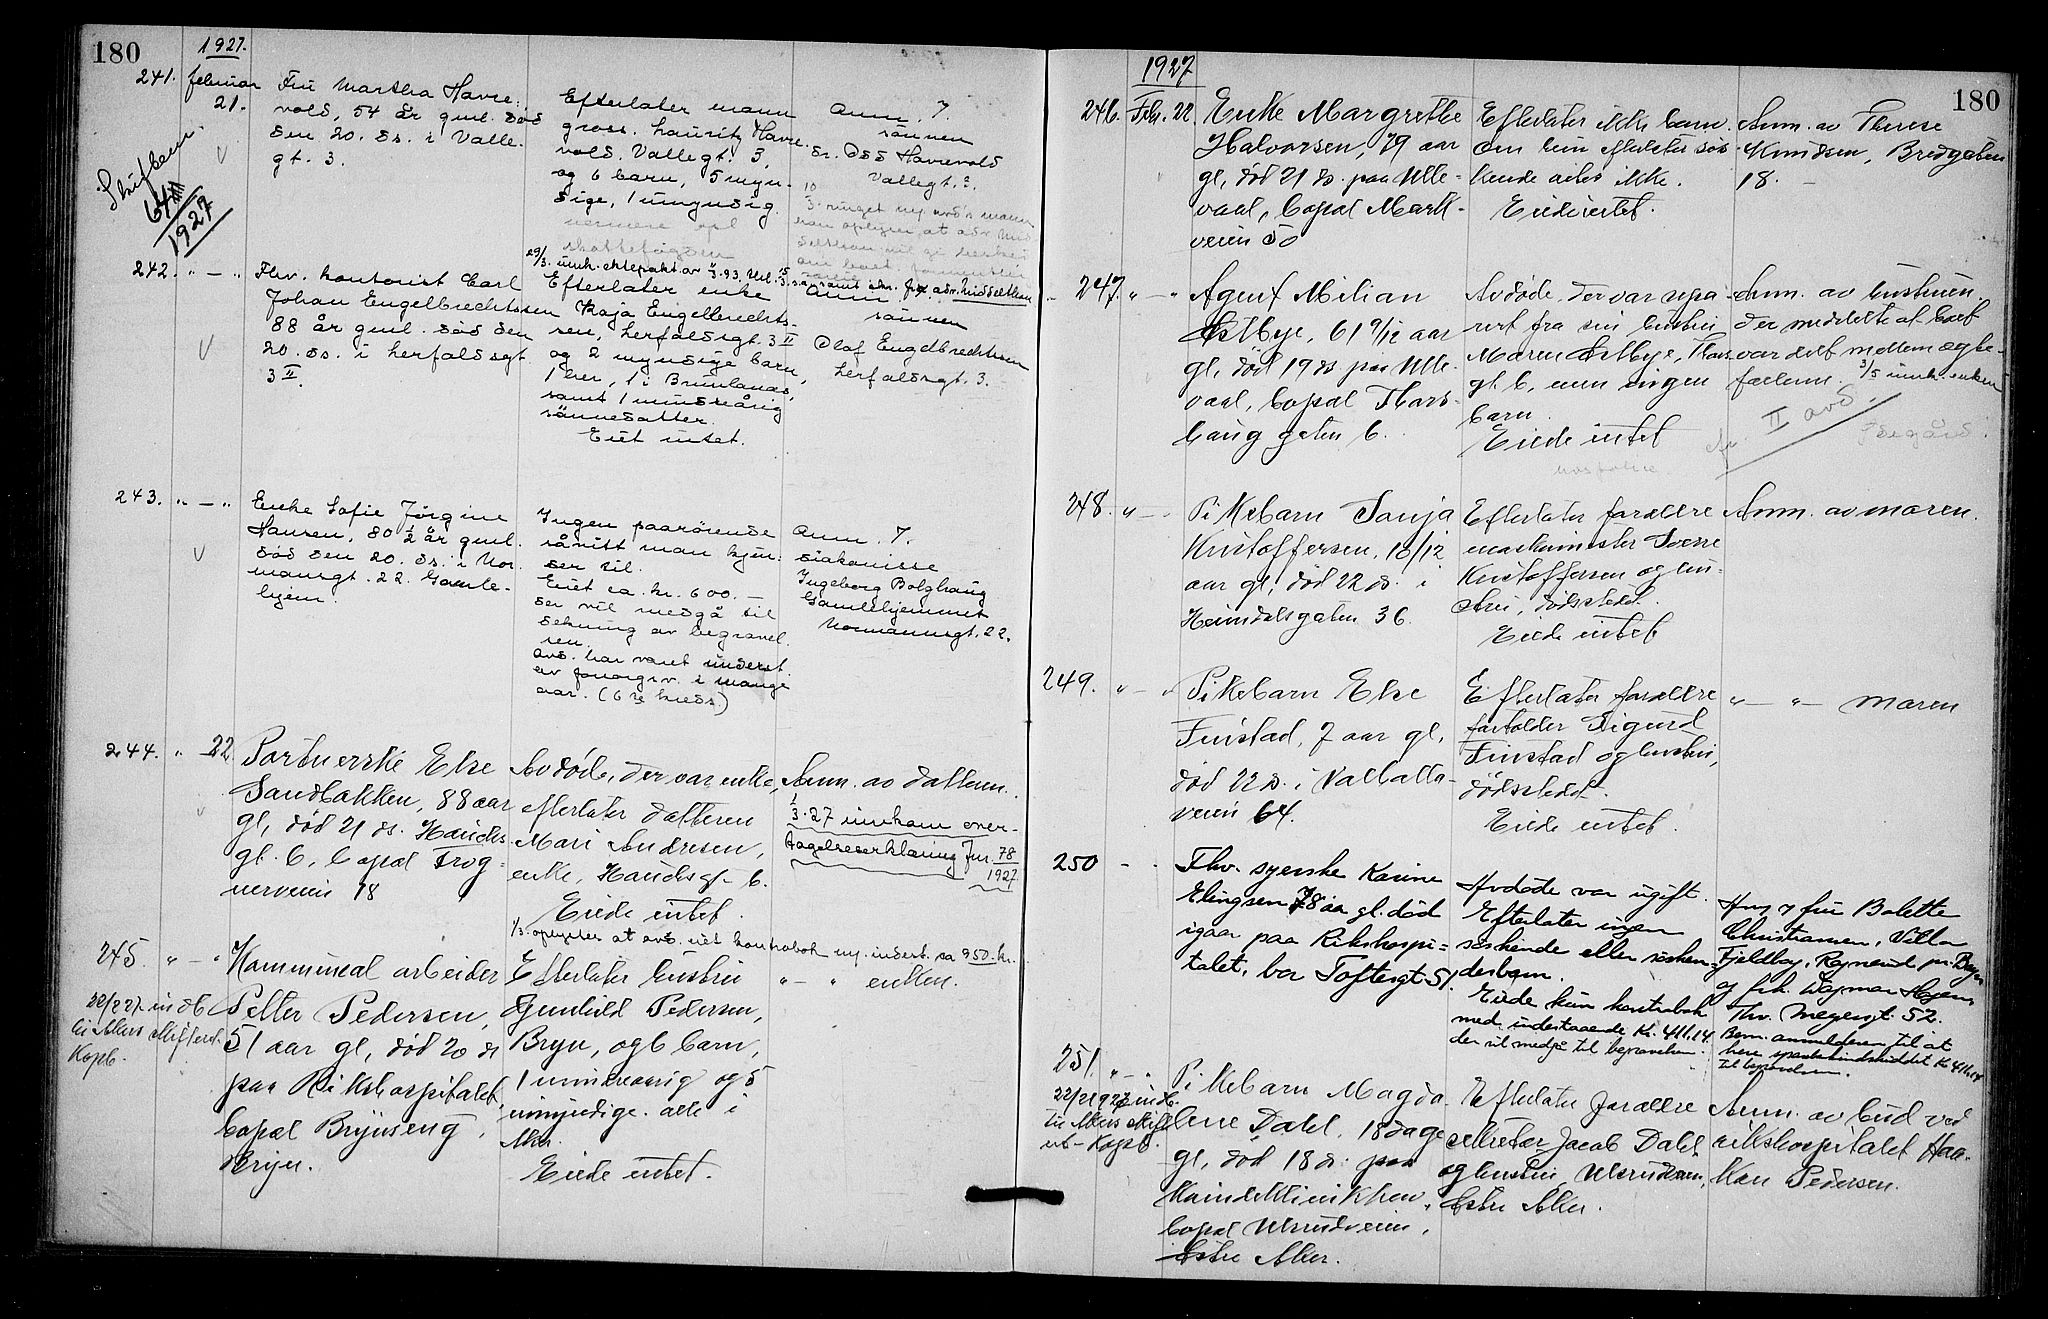 180
1927.
241. februar 21.
Fru Martha Havre-
vold, 54 år gml. død
den 20. ds. i Valle-
gt. 3.
Efterlater mann
gross. Lauritz Havre-
vold, Vallegt. 3,
og 6 barn, 5 myn-
dige, 1 umyndig.
Anm. 7.
sønnen
Odd Havrevold
Vallegt. 3.
Skiftbeh.
1927
29/3. innk. ektepakt av
242. " — "
Fhv. kontorist Carl
Johan Engelbrechtsen
88 år gml. død den
20. ds. i Herfaldsgt.
3 II.
Efterlater enke
Kaja Engelbrechts-
sen, Herfaldsgt. 3 II
og 2 myndige barn,
1 her, 1 i Brunlanes,
samt 1 mindreårig
sønnedatter.
Eiet intet.
Anm.
sønnen
Olaf Engelbrechtsen
Herfaldsgt. 3.
243. " — "
Enke Sofie Jørgine
Hansen, 80 1/2 år gml.
død den 20. ds. i Nor-
mannsgt. 22. Gamle-
hjem.
Ingen paarørende
såvitt man kjen-
der til.
Eiet ca. kr. 600.—
der vil medgå til
dekning av begravel-
sen.
Avd. har været underst.
av forsorgsv. i mange
aar. (6te kreds)
Anm. 7.
diakonisse
Ingeborg Bolghaug
Gamlehjemmet
Normannsgt. 22.
244. " — 22
Portnerske Else
Sandbakken, 88 aar
gl, død 21 ds. Hauchs-
gt. 6, bopæl Frog-
nerveien 18
Avdøde, der var enke,
efterlater datteren
Mari Andresen,
enke, Hauchsgt. 6.
Eiede intet.
Anm. av datteren.
1/3.27 innkom over-
tagelseserklæring Jnr. 78
1927
1/3. oplystes at avd. eiet kontrabok m. indest. ca 950 kr.
245. " — "
Kommuneal arbeider
Petter Pedersen,
51 aar gl, død 20 ds
paa Rikshospitalet,
bopæl Brynseng,
Bryn.
Efterlater hustru
Gunhild Pedersen,
Bryn, og 6 barn,
1 mindreaarig og 5
umyndige. alle i
Aker.
Eiede intet.
" — " enken.
22/2 27 indb
til Akers skifteret.
Kopb.
180
1927
246. Febr. 22.
Enke Margrethe
Halvorsen, 79 aar
gl, død 21 ds. paa Ulle-
vaal, bopæl Mark-
veien 50
Efterlater ikke barn.
om hun efterlater søs-
kende vites ikke.
Eiede intet.
Anm. av Therese
Knudsen, Bredgaten
18.
247. " — "
Agent Milian
Østbye, 61 9/12 aar
gl, død 19 ds paa Ulle-
vaal, bopæl Thors-
haug gaten 6.
Avdøde, der var sepa-
rert fra sin hustru
Maren Østbye, Thors-
gt. 6, men ingen
barn.
Eiede intet
Anm. av hustruen.
der meddelte at boet
var delt mellem ægte-
fællene. 3/5 innk. enken
II avd.
Ødegård.
248. " —
Pikebarn Sonja
Kristoffersen, 10/12
aar gl, død 22 ds. i
Heimdalsgaten 36.
Efterlater forældre
maskinmester Sverre
Kristoffersen og hu-
stru, dødsstedet.
Eiede intet
Anm. av moren.
249. " — "
Pikebarn Else
Finstad, 7 aar gl,
død 22 ds. i Valhalla-
veien 64.
Efterlater forældre
forvalder Sigurd
Finstad og hustru,
dødsstedet.
Eiede intet.
" — " — moren
250 — "
Fhv. syerske Karine
Elingsen 78 aar gl. død
igaar paa Rikshospi-
talet, bor Toftesgt 51.
Avdøde var ugift.
Efterlater ingen
søskende eller søsken-
debarn.
Eiede kun kontrabok
med indestaaende Kr. 411.14
der vil medgaa til begravelsen.
Anm. 7 fru Bolette
Christiansen, Villa
Fjeldhøy,
og frk. Dagmar
Thv. Meyersgt. 52.
Bem. anmelderen til at
heve sparebankinskuddet Kr 411.14
til begravelsen.
251. " — "
Pikebarn Magda-
lene Dahl, 18 dage
gl, død 18 ds. paa
Kvindeklinikken,
bopæl Ulsrudveien,
Østre Aker.
Efterlater forældre
sekretær Jacob Dahl
og hustru, Ulsrudveien,
Østre Aker.
Anm. av bud ved
rikshospitalet Haa-
kon Pedersen.
22/2 1927 indb.
til Akers skift
ret - Kopb.